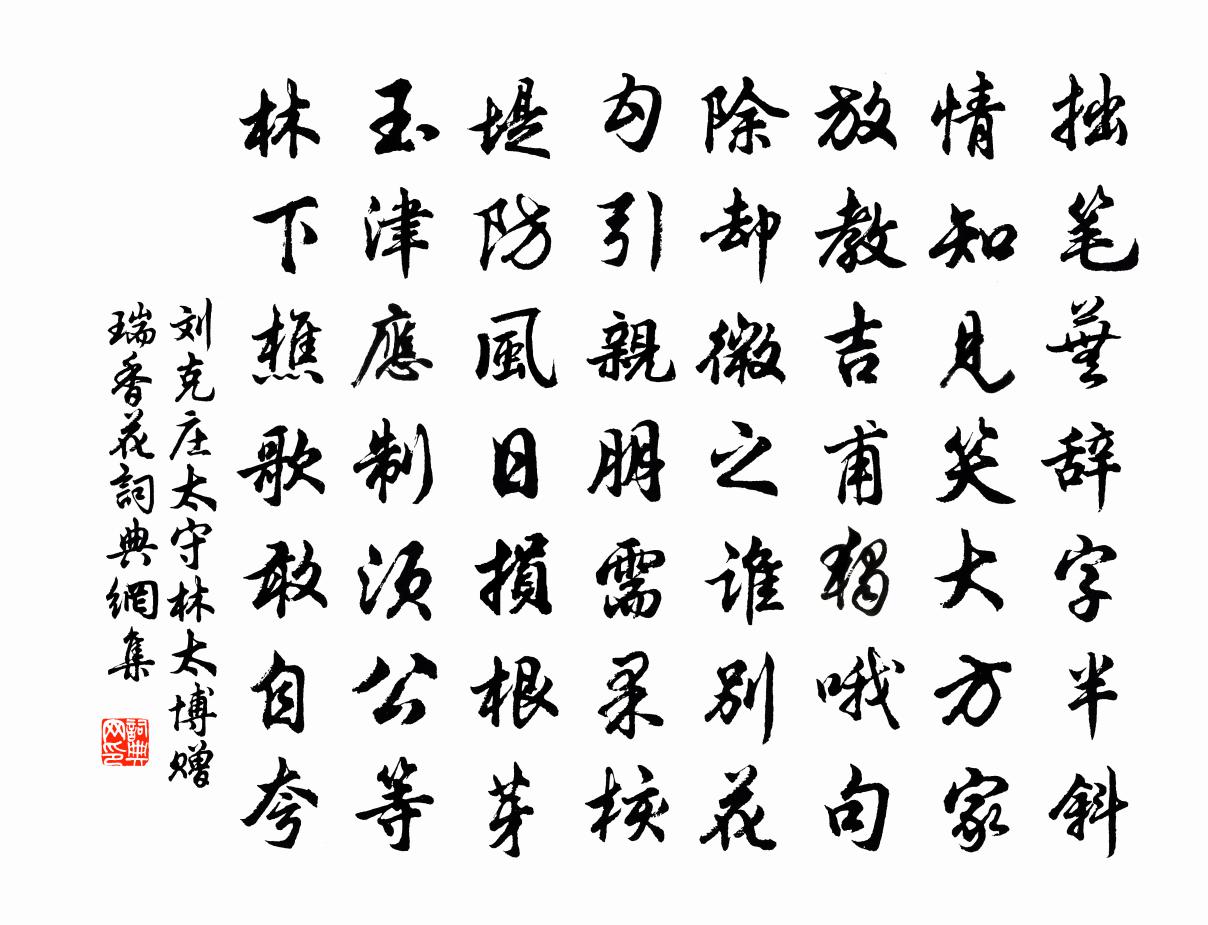 拙笔芜辞字半斜
情知见笑大方家
放教吉甫独哦句
除却微之谁别花
勾引親朋需果核
堤防風日損根芽
玉津應制须公等
林下樵歌敢自夸
刘克庄太守林太博赠
瑞香花詞典網集
詞典网印